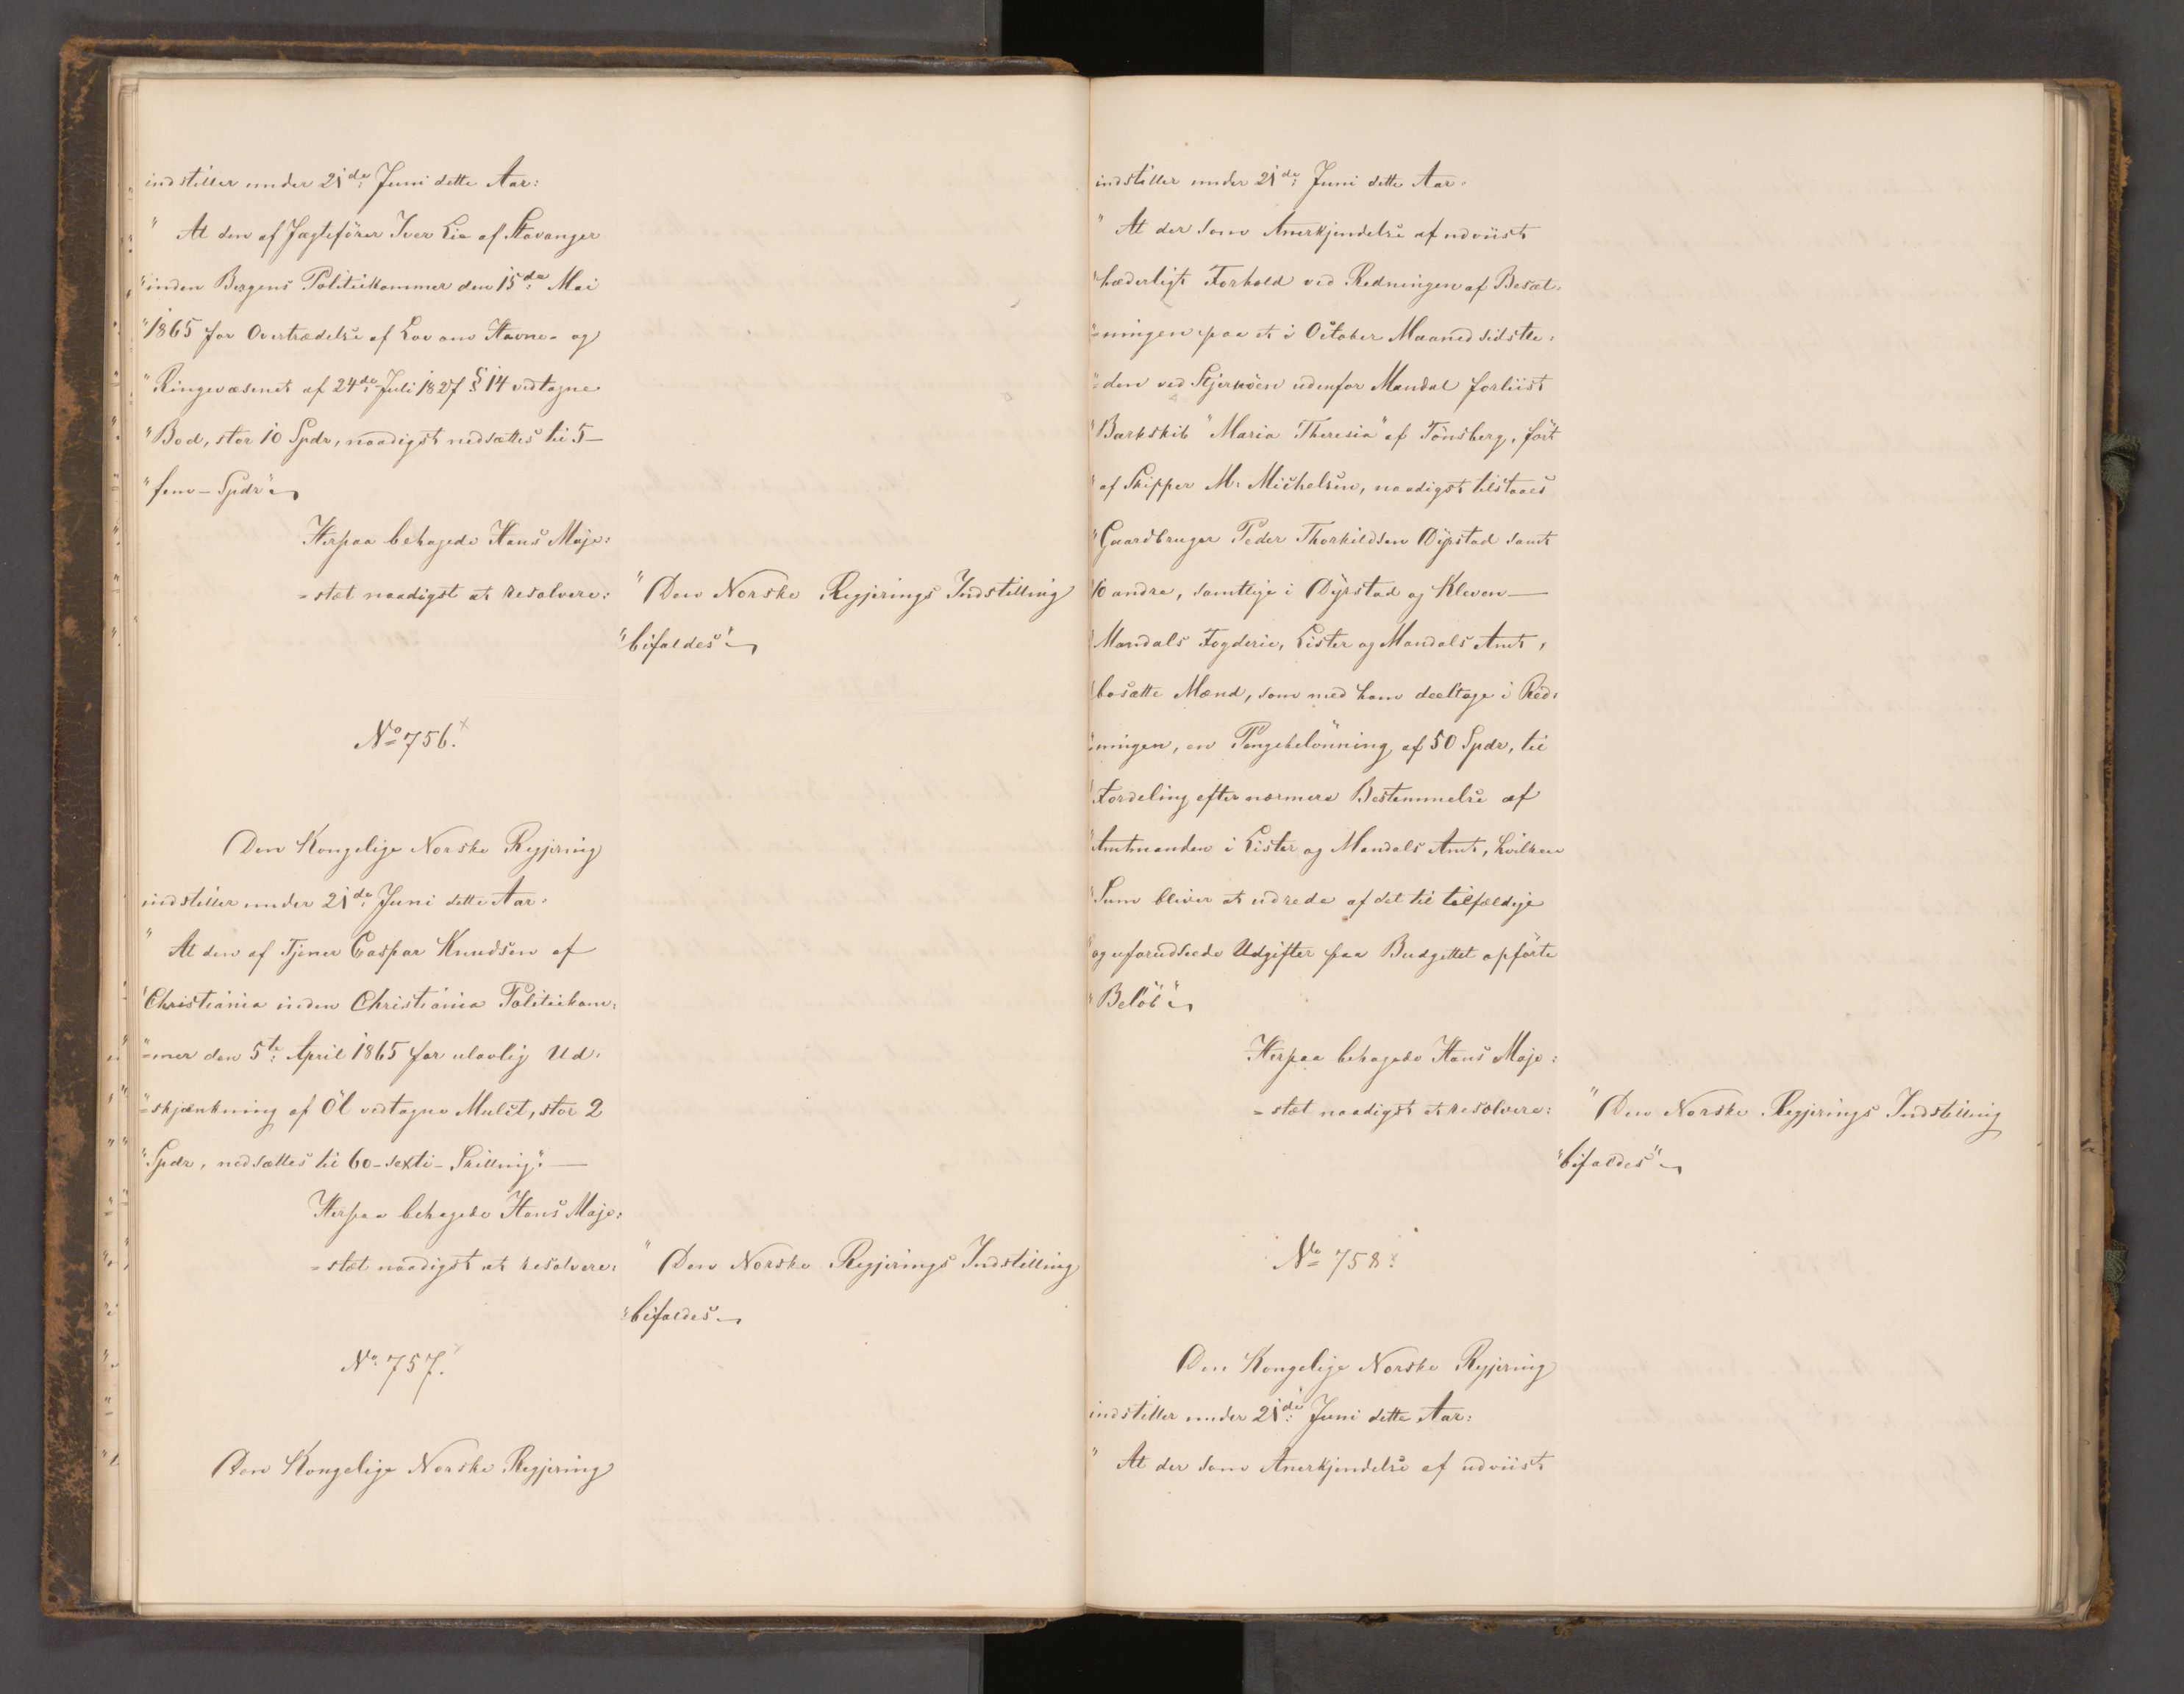 indstiller under 21de: Juni dette Aar:
" At den af Jagtefører Iver Lie af Stavanger
"inden Bergens Politikammer den 15de: Mai
"1865 for Overtrædelse af Lov om Havne- og
"Ringevæsenet af 24de: Juli 1827 § 14 vedtagne
"Bod, stor 10 Spdr, naadigst nedsættes til 5-
"fem-Spdr"
Herpaa behagede Hans Maje:
=stæt naadigst at resolvere:
"Den Norske Regjerings Indstilling
"bifaldes"
No 756.
Den Kongelige Norske Regjering
indstiller under 21de: Juni dette Aar:
" At den af Tjener Caspar Knudsen af
"Christiania inden Christiania Politikam:
"=mer den 5te: April 1865 for ulovlig Ud:
"=skjænkning af Öl vedtagne Mulct, stor 2
"Spdr, nedsættes til 60-sexti-Skilling".
Herpaa behagede Hans Maje:
=stæt naadigst at resolvere:
"Den Norske Regjerings Indstilling
"bifaldes
No 757.
Den Kongelige Norske Regjering
indstiller under 21de: Juni dette Aar:
" At der som Anerkjendelse af udviist
"hæderligt Forhold ved Redningen af Besæt:
"=ningen paa et i October Maaned sidstle:
"=den ved Skjernöen udenfor Mandal forliist
"Barkskib "Maria Theresia" af Tönsberg, fört
"af Skipper M. Michelsen, naadigst tilstaaes
"Gaardbruger Peder Thorkildsen Öÿstad samt
"6 andre, samtlige i Öÿstad og Kleven-
"Mandals Fogderie, Lister og Mandals Amt,
"bosatte Mænd, som med ham deeltoge i Red:
"=ningen, en Pengebelönning af 50 Spdr, til
"Fordeling efter nærmere Bestemmelse af
"Amtmanden i Lister og Mandals Amt, hvilken
"Sum bliver at udrede af det til tilfældige
"og uforudseede Udgifter paa Budgettet opförte
"Belöb"
Herpaa behagede Hans Maje:
=stæt naadigst at resolvere:
"Den Norske Regjerings Indstilling
"bifaldes"
No 758.
Den Kongelige Norske Regjering
indstiller under 21de: Juni dette Aar:
" At der som Anerkjendelse af udviist